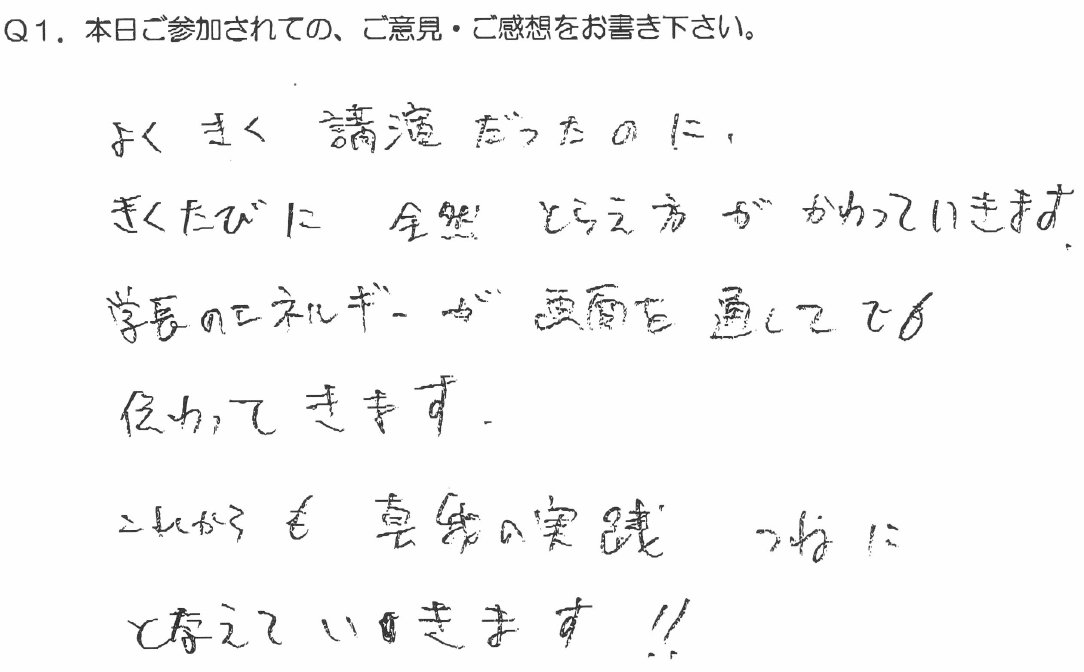 Q1. 本日ご参加されての、ご意見・ご感想をお書き下さい。
よく きく 講演 だったのに、
きくたびに 全然 とらえ方 が かわっていきます.
学長のエネルギーが 画面を 通してでも
伝わって きます.
これからも 真我の実践 つねに
と存えて いきます!!